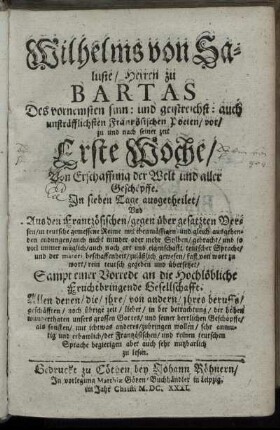 Wilhelms von Sa-
luste/ Herren zu
BARTAS
Des vornemsten sinn: und geistreichst: auch
unsträfflichsten Französischen Poeten/ vor/
zu und nach seiner zeit
Erste Woche/
Von Erschaffung der Welt und aller
Geschöpffe.
In sieben Tage ausgetheilet/
Und
Aus den Frantzösischen/ gegen über gesatzten Ver-
sen/ in teutsche gemessene Reime mit
endungen/ auch nicht minder oder mehr Sylben/ gebracht/ und so
viel immer möglich/ auch nach art und eigenschafft teutscher Sprache/
und der materi beschaffenheit/ zuläßlich gewesen/ fast von wort zu
wort/ rein teutsch gegeben und übersetzet/
Sampt einer Vorrede an die Hochlöbliche
Fruchtbringende Gesellschafft.
Allen denen/ die/ ihre/ von andern/ ihres beruffs/
geschäfften/ noch übrige zeit/ lieber/ in der betrachtung/ der hohen
wunderthaten unsers grossen Gottes/ und seiner herrlichen Geschöpffe/
als sonsten/ mit ichtwas anders/ zubringen wollen/ sehr anmu-
tig und erbawlich/ der Französischen/ und reinen teutschen
Sprache begierigen aber auch sehr nutzbarlich
zu lesen.
Gedruckt zu Cöthen bey Johann Röhnern/
In vorlegung Matthiæ Götzen/ Buchhändler in Leipzig.
im Jahr Christi M. DC. XXXI.